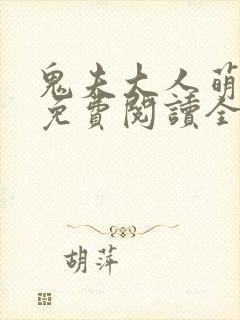 鬼夫大人萌
免費閱讀全
胡萍